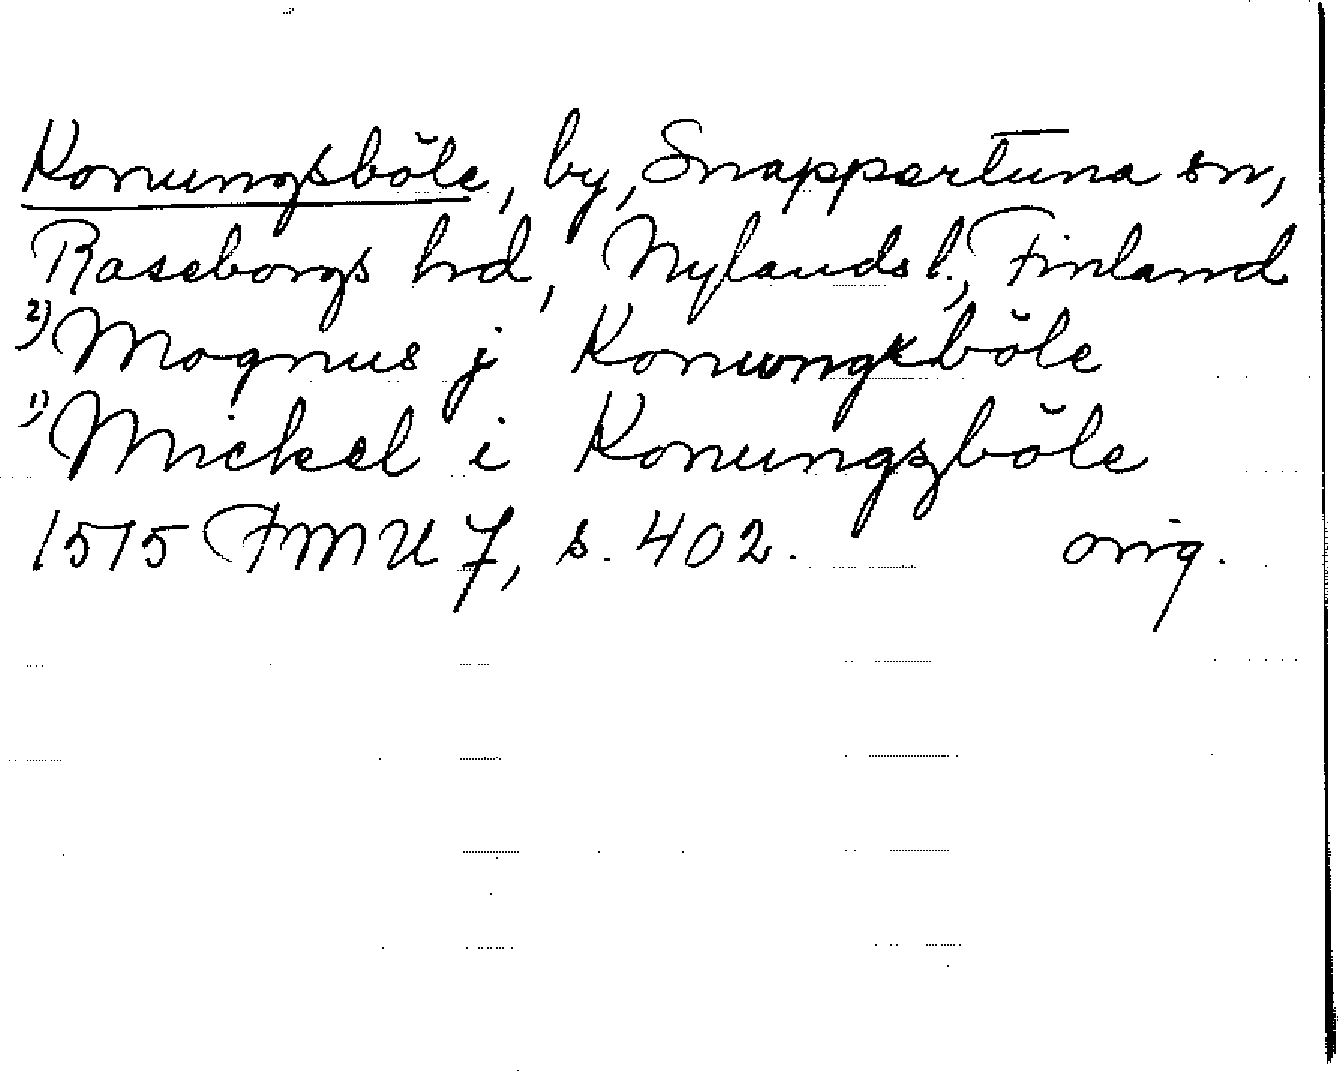 Konungsböle, by, Snappertuna sn,
Raseborgs hrd, Nylands l., Finland
2) Magnus j Konungxböle
1) Mickel i Konungzböle
1515 FMU 7, s. 402. orig.